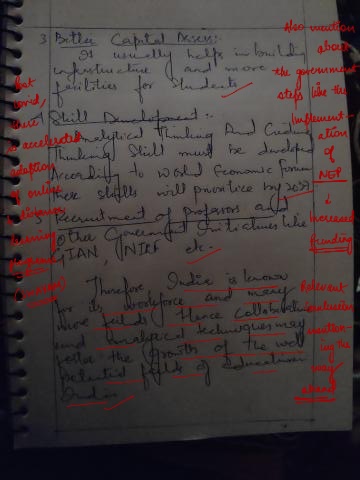 3 Better Capital Access:-
It usually helps in building
infrastructure and more
facilities for students
Skill Development:-
Analytical Thinking And
Thinking Skill must be developed
According to World Economic Forum
these skills will prioritize by
recruitment of professors and
Other Government Initiatives like
GIAN, NIRF etc.
Therefore, India is known
for its workforce and many
more fields. Hence Collaborative
and analytical techniques may
foster the Growth of the well
potential fields of Education
India
Also mention
about
the government
steps like the
Implement-
ation
of
NEP
↓
increased
funding
Relevent
conclusion
mention-
ing the
way
ahead
Post
covid,
there
is accelerated
adoption
of online
& distance
learning
programs